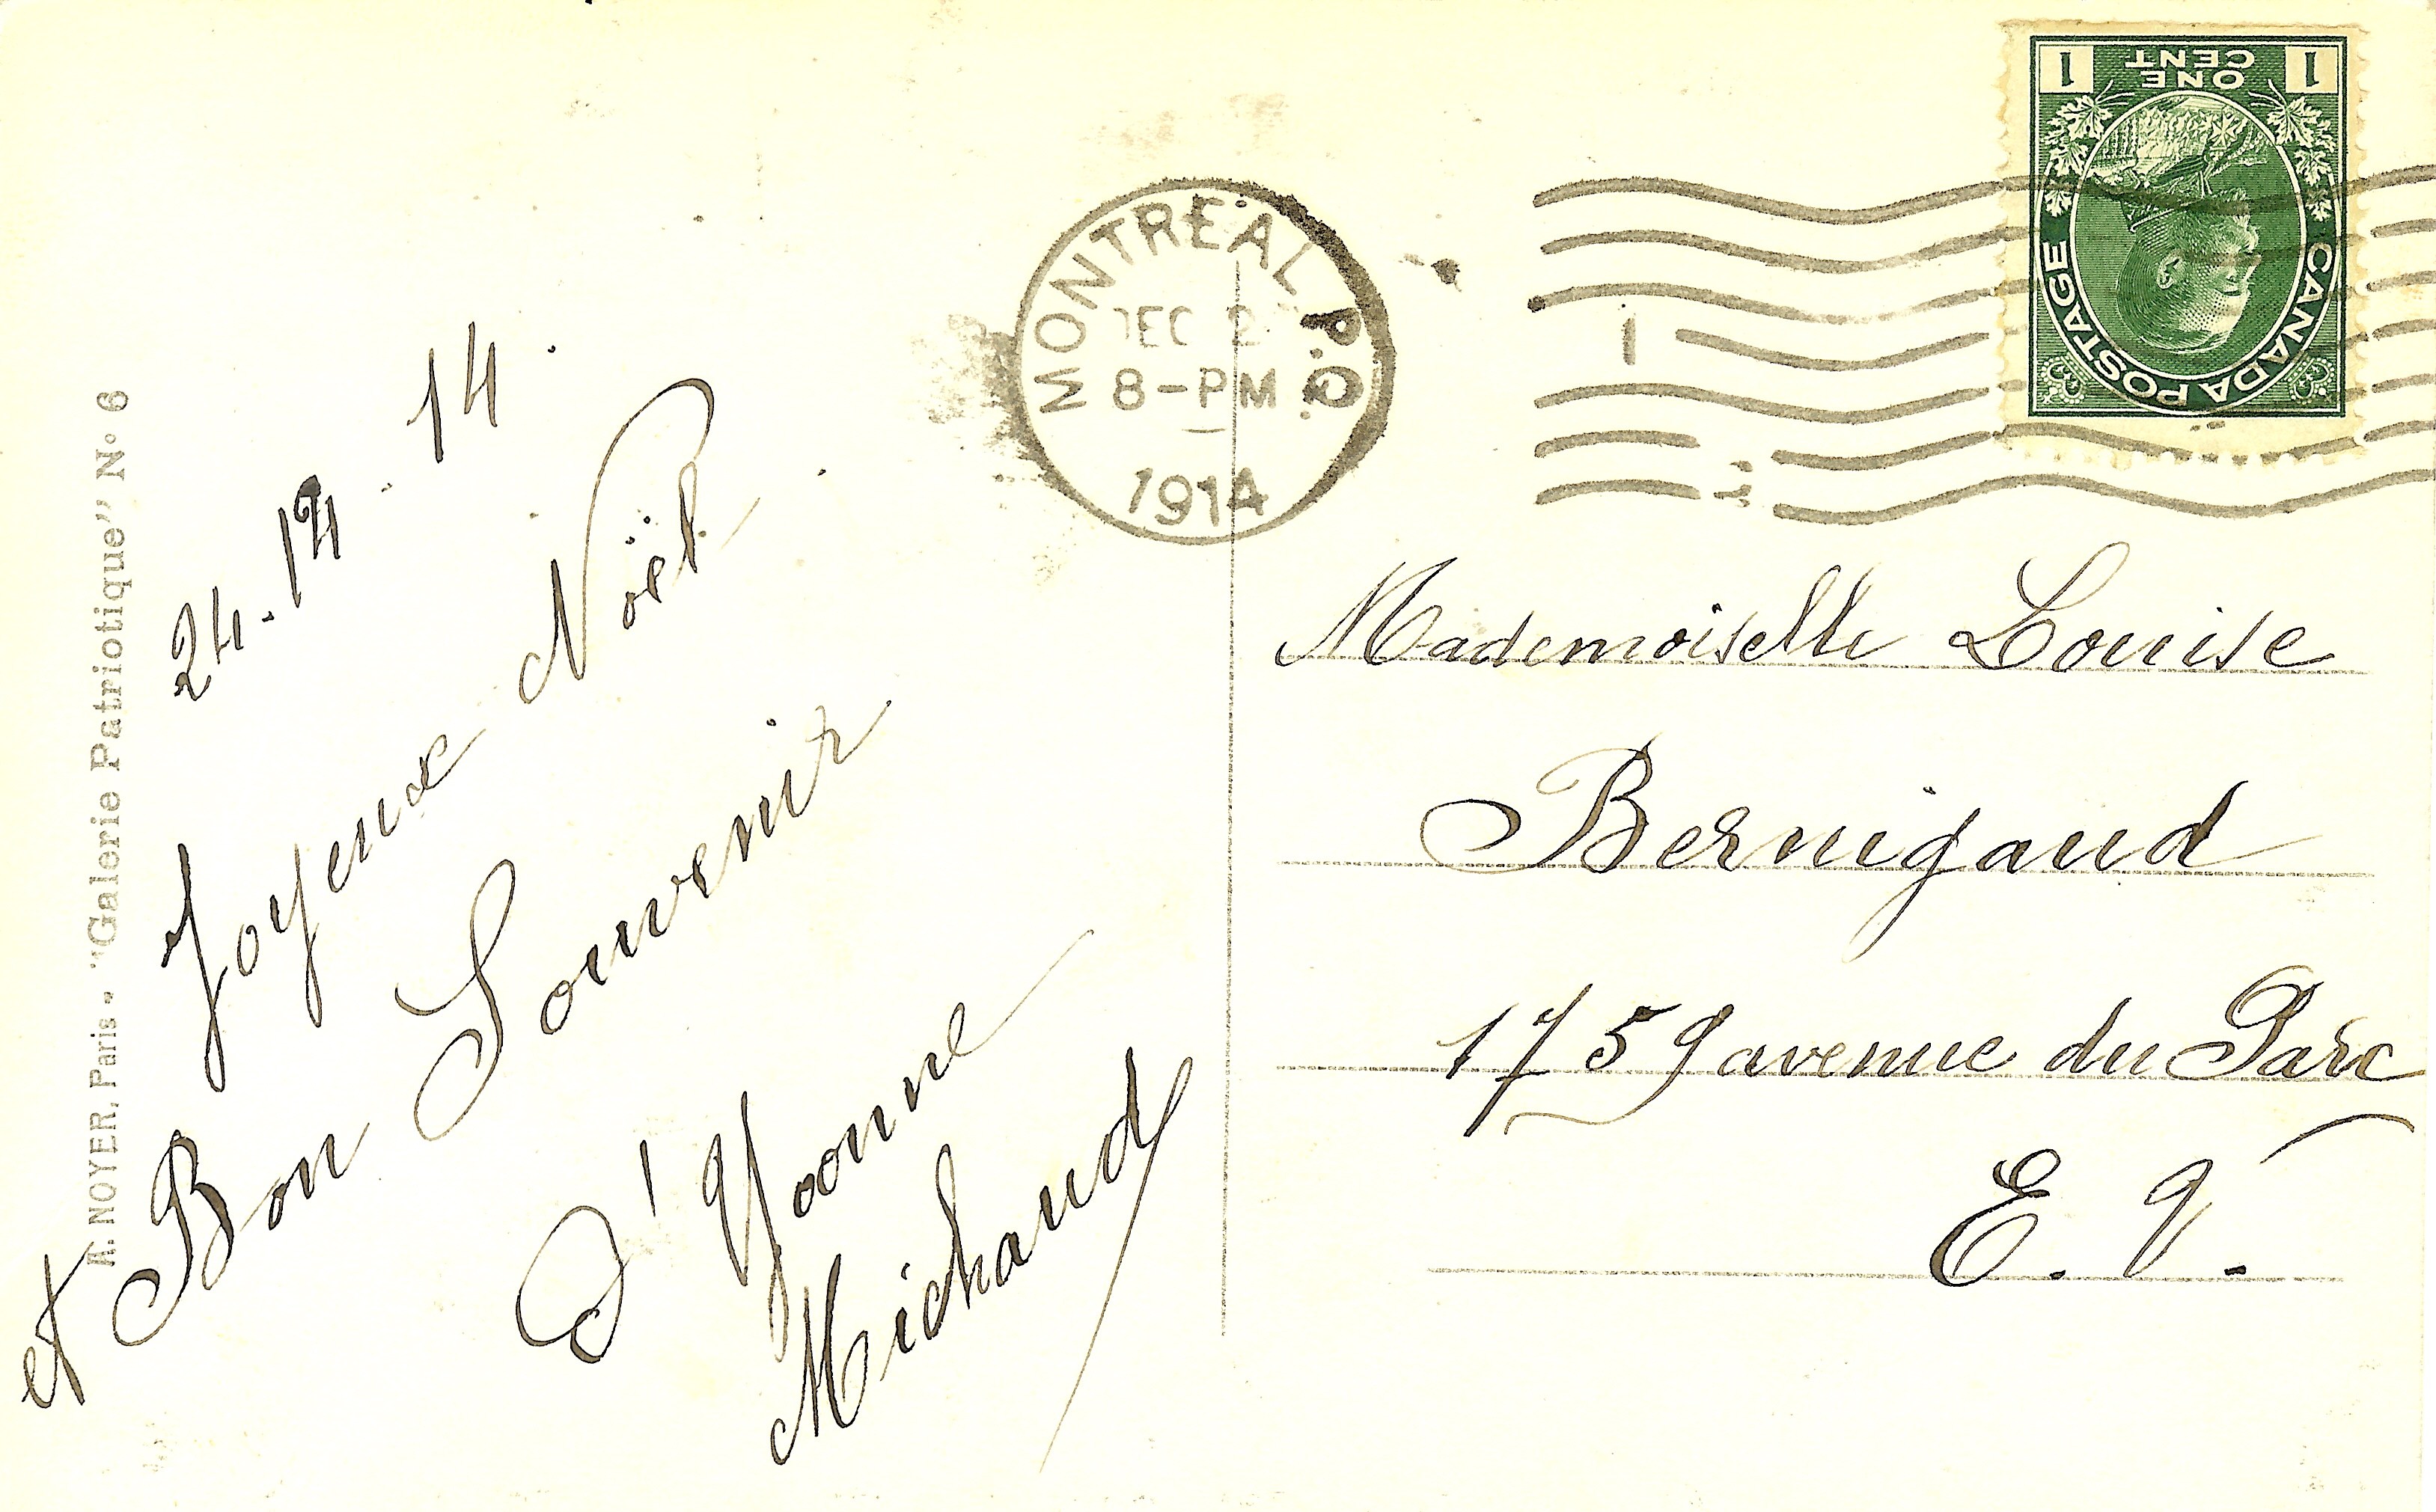 A. NOYER, Paris - "Galerie Patriotique" N° 6
24-12 14
Joyeux Noël
et Bon Souvenir
D'Yvonne
Michaud
MONTREAL P.Q.
DEC 2
8-PM
1914
1
CANADA POSTAGE
1 ONE CENT 1
Mademoiselle Louise
Bernigaud
1759 avenue du Parc
E. V.